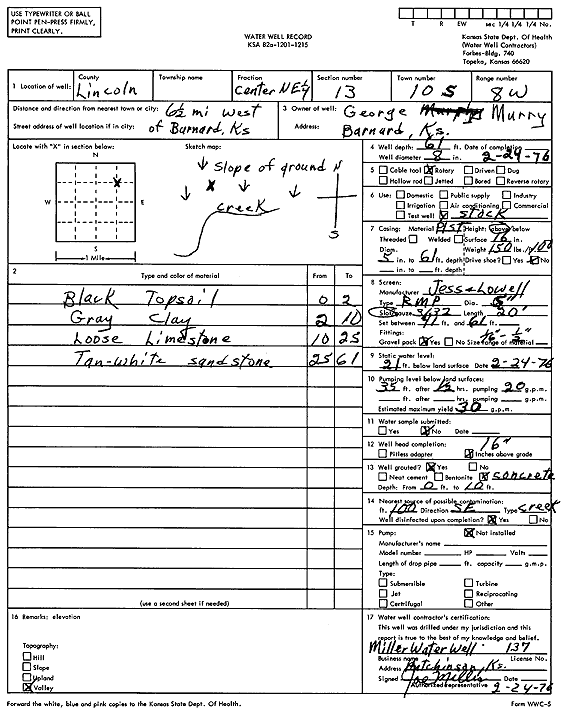 USE TYPEWRITER OR BALL
POINT PEN-PRESS FIRMLY,
PRINT CLEARLY.
WATER WELL RECORD
KSA 82a-1201-1215
T R EW sec 1/4 1/4 1/4 No.
Kansas State Dept. Of Health
(Water Well Contractors)
Forbes-Bldg. 740
Topeka, Kansas 66620
1 Location of well: County Lincoln Township name Fraction Center NE¼ Section number 13 Town number 10 S Range number 8W
Distance and direction from nearest town or city: 6½ mi west
Street address of well location if in city: of Barnard, Ks
3 Owner of well: George Murry
Address: Barnard, Ks.
Locate with "X" in section below:
N
W E
S
1 Mile
Sketch map:
Slope of ground N
X
creek
S
4 Well depth: 61 ft. Date of completion
Well diameter 8 in. 2-24-76
5 Cable tool X Rotary Driven Dug
Hollow rod Jetted Bored Reverse rotary
6 Use: Domestic Public supply Industry
Irrigation Air conditioning Commercial
Test well X stock
7 Casing: Material Plst Height: above below
Threaded Welded Surface 16 in.
Diam. Weight 150 lbs
5 in. to 61 ft. depth Drive shoe? Yes X No
in. to ft. depth
2 Type and color of material From To
Black Topsoil 0 2
Gray Clay 2 10
Loose Limestone 10 25
Tan-white sandstone 25 61
(use a second sheet if needed)
8 Screen:
Manufacturer Jess & Lowell
Type RMP Dia. 5"
Slot/gauze 3/32 Length 20'
Set between 41 ft. and 61 ft.
Fittings:
Gravel pack X Yes No Size range of material
9 Static water level:
21 ft. below land surface Date 2-24-76
10 Pumping level below land surfaces:
35 ft. after ½ hrs. pumping 20 g.p.m.
ft. after hrs. pumping g.p.m.
Estimated maximum yield 30 g.p.m.
11 Water sample submitted:
Yes X No Date
12 Well head completion: 16"
Pitless adapter X Inches above grade
13 Well grouted? X Yes No
Neat cement Bentonite X concrete
Depth: From 0 ft. to 10 ft.
14 Nearest source of possible contamination:
ft. 100 Direction SE Type creek
Well disinfected upon completion? X Yes No
15 Pump: X Not installed
Manufacturer's name
Model number HP Volts
Length of drop pipe ft. capacity g.m.p.
Type:
Submersible Turbine
Jet Reciprocating
Centrifugal Other
16 Remarks: elevation
Topography:
Hill
Slope
Upland
X Valley
17 Water well contractor's certification:
This well was drilled under my jurisdiction and this
report is true to the best of my knowledge and belief.
Miller Water Well 137
Business name License No.
Address Hutchinson, Ks.
Signed Joe Miller
Authorized representative 2-24-76
Forward the white, blue and pink copies to the Kansas State Dept. Of Health.
Form WWC-5